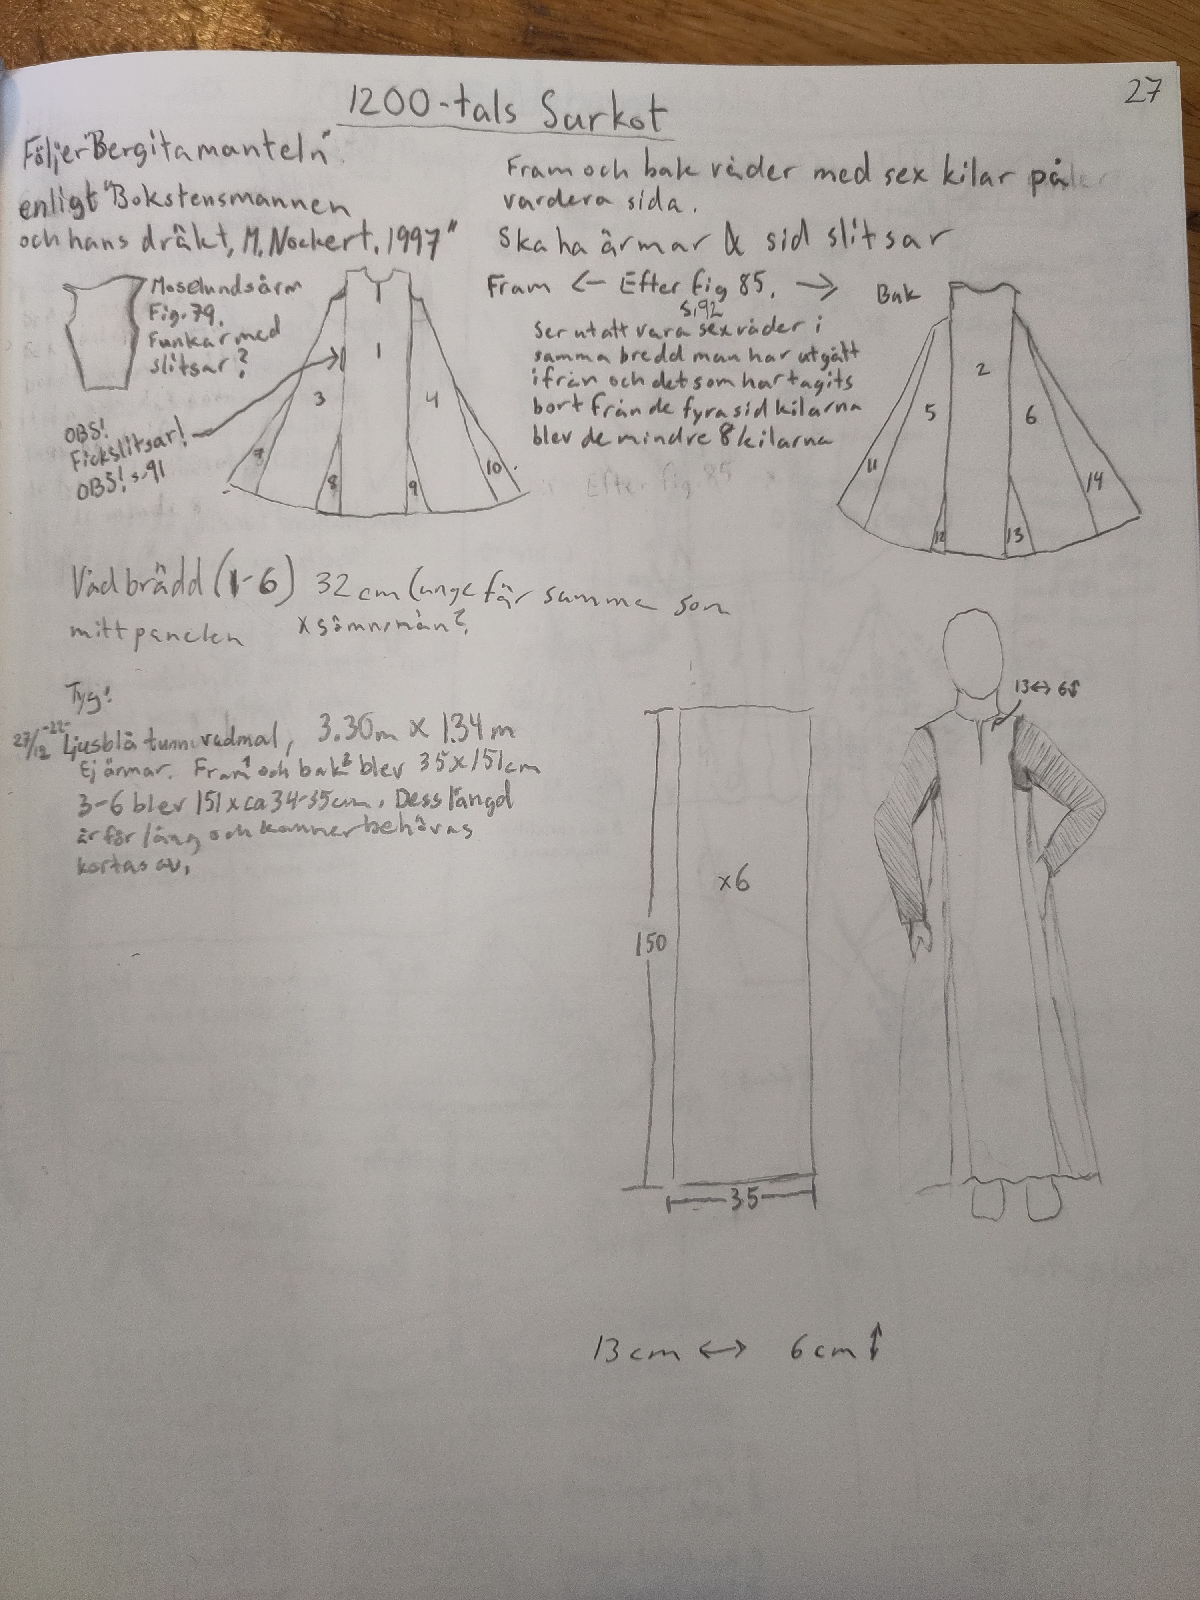 27
1200-tals Surkot
Följer "Bergitamanteln"
enligt "Bokstensmannen
och hans dräkt, M. Nockert, 1997"
Fram och bak våder med sex kilar på
vardera sida.
Ska ha ärmar & sid slitsar
Moselundsärm
Fig. 79.
Funkar med
slitsar?
OBS!
Fickslitsar!
OBS! s. 91
1
3
4
7
8
9
10
Fram <- Efter fig 85. ->
s. 92
Bak
Ser ut att vara sex våder i
samma bredd man har utgått
ifrån och det som har tagits
bort från de fyra sid kilarna
blev de mindre 8 kilarna
Efter fig. 85
2
5
6
11
12
13
14
Våd brädd (1-6) 32 cm (ungefär samma som
mittpanelen x sömnsmån?
Tyg!
27/12 -22- Ljusblå tunn vadmal, 3.30m x 1.34 m
Ej ärmar. Fram¹ och bak² blev 35x151cm
3-6 blev 151 x ca 34-35cm. Dess längd
är för lång och kommer behövas
kortas av.
150
x6
35
13↔ 6↕
13 cm ↔ 6 cm ↕